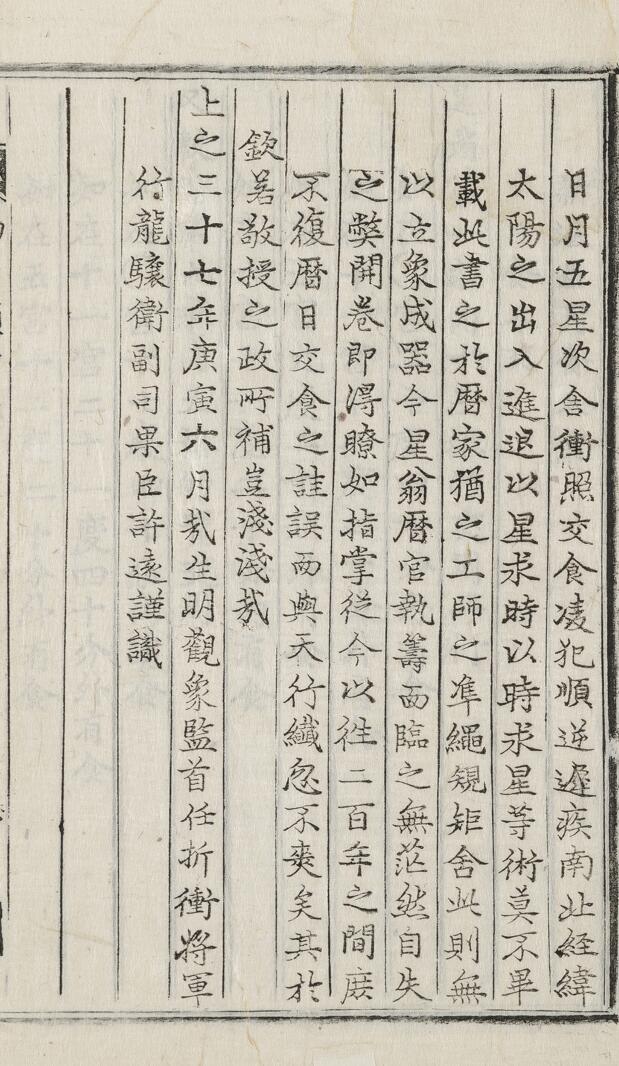 日月五星次舍衝照交食凌犯順逆遲疾南北經緯
太陽之出入進退以星求時以時求星等術莫不畢
載此書之於曆家猶之工師之準繩規矩舍此則無
以立象成器今星翁曆官執籌而臨之無茫然自失
之弊開卷即淂瞭如指掌從今以徃二百年之間庶
不復曆日交食之註誤而與天行纎忽不爽矣其於
欽若敬授之政所補豈淺淺㢤
上之三十七年庚寅六月㢤生明觀象監首任折衝將軍
行龍驤衛副司果臣許遠謹識